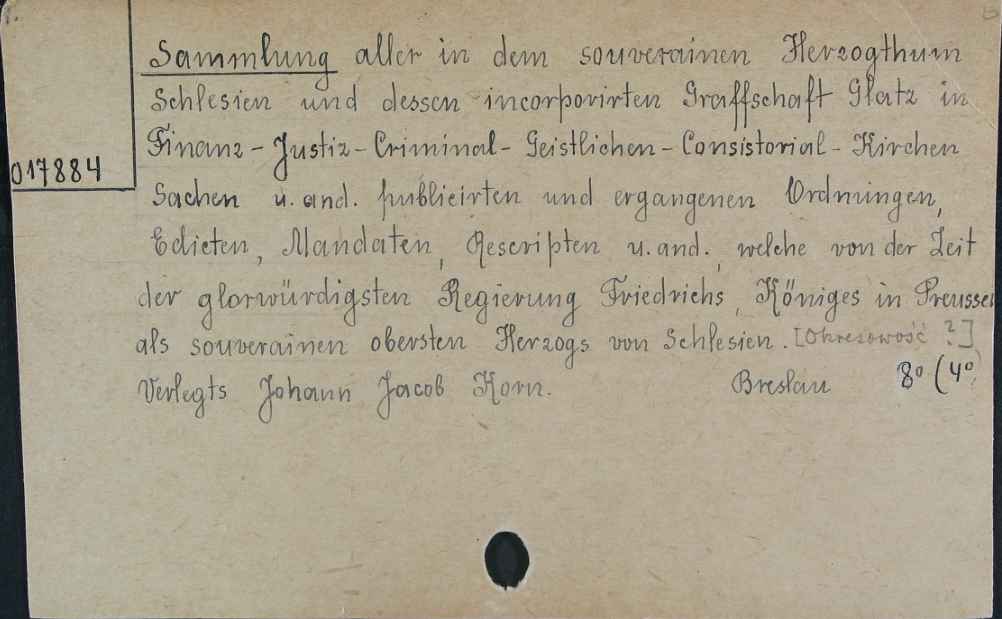 Sammlung aller in dem souverainen Herzogthum
Schlesien und dessen incorporirten Graffschaft Glatz in
Finanz - Justiz - Criminal - Geistlichen - Consistorial - Kirchen
017884
Sachen u. and. publicirten und ergangenen Ordnungen,
Edicten, Mandaten, Rescripten u. and., welche von der Zeit
der glorwürdigsten Regierung Friedrichs, Königes in Preussen
als souverainen obersten Herzogs von Schlesien. [Okresowość ?]
Verlegts Johann Jacob Korn. Breslau 8° (4°